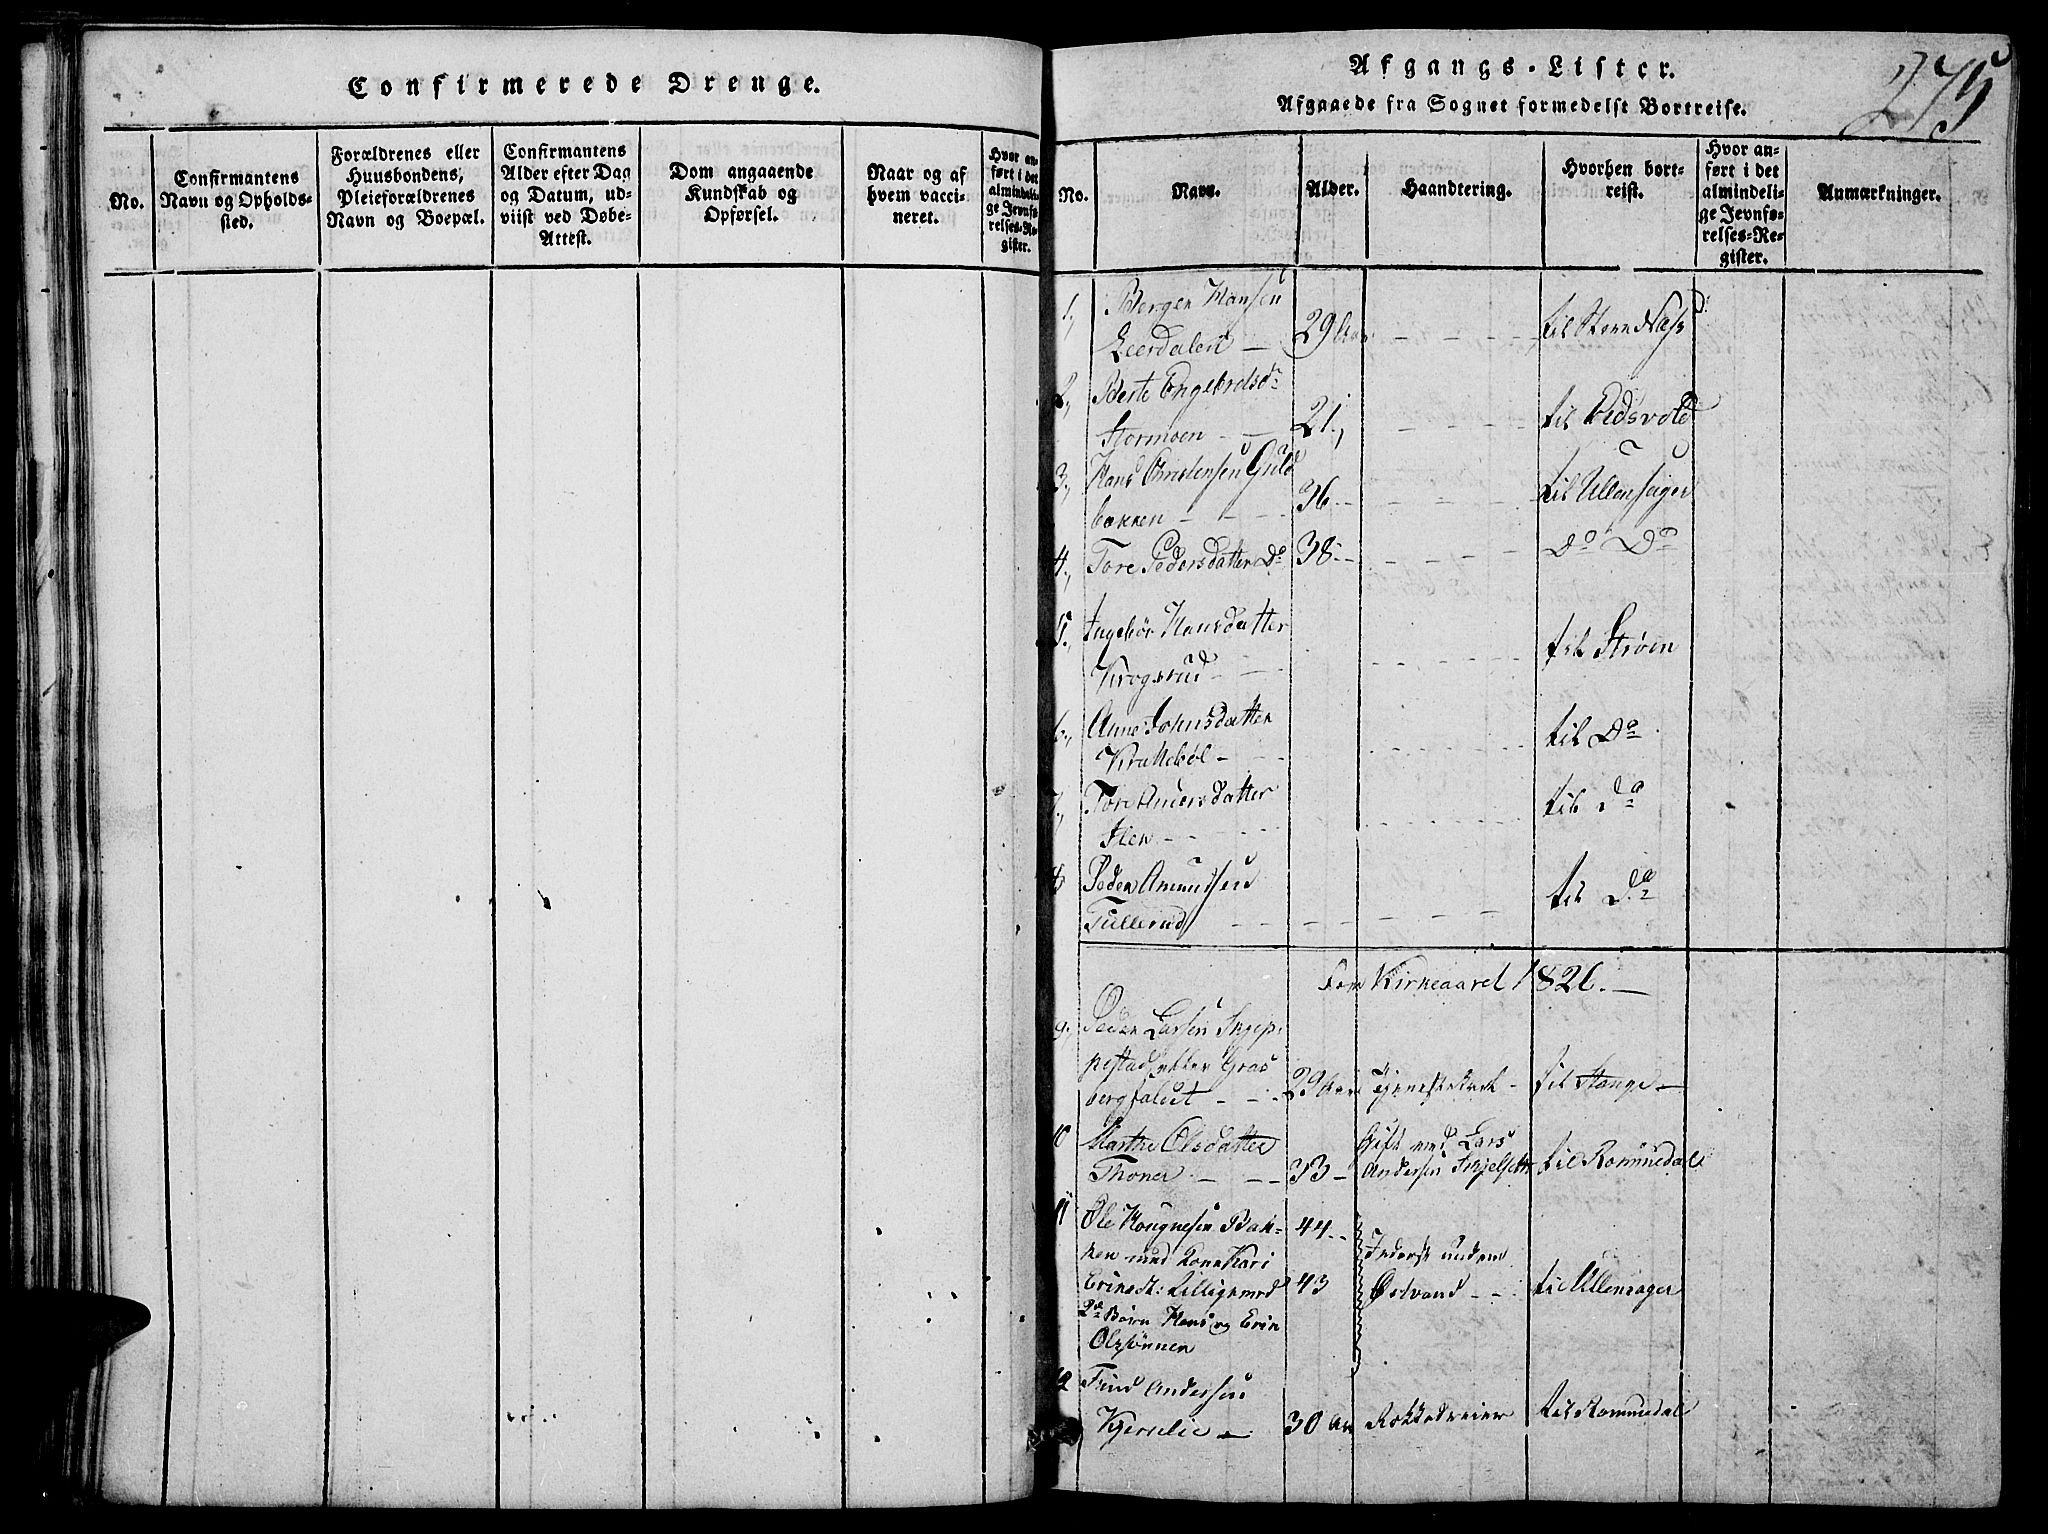 Confirmerede Drenge.
No.
Confirmantens
Navn og Opholds-
sted.
Forældrenes eller
Huusbondens,
Pleieforældrenes
Navn og Boepæl.
Confirmantens
Alder efter Dag
og Datum, ud-
viist ved Døbe-
Attest.
Dom angaaende
Kundskab og
Opførsel.
Naar og af
hvem vacci-
neret.
Hvor an-
ført i det
almindeli-
ge Jevnfø-
relses-Re-
gister.
275
Afgangs-Lister.
Afgaaede fra Sognet formedelst Bortreise.
No.
Navn.
Alder.
Haandtering.
Hvorhen bort-
reist.
Hvor an-
ført i det
almindeli-
ge Jevnfø-
relses-Re-
gister.
Anmærkninger.
1, Børger Hansen
Leerdalen 29 Aar til Store Næss
2, Berte Engebretsdr
Stormoen 21, til Eidsvold
3, Hans Christensen Guld
bakken 36 til Ullensager
4, Tore Pedersdatter Do 38 Do Do
5, Ingebør Hansdatter
Krogsrud til Strøen
6, Anne Johnsdatter
Krakkebøl til Do
7, Tore Andersdatter
til Do
8 Peder Amundsen
Tullerud til Do
For Kirkeaaret 1826.
9, Peder Larsen Skjep-
pestad Gras
berg 29 Aar Tjenestekarl til Stange
10 Marthe Olsdatter
Thoner 33 Gift med Lars
Andersen til Rommedal
11 Ole Haagnesen Bak-
ken med Kone Kari
44
43
Inderst under
Østvand til Ullensager
2de Børn Hans og
Olssønner
12 Trind Andersen
Kjerrelie 30 Aar til Rommedal